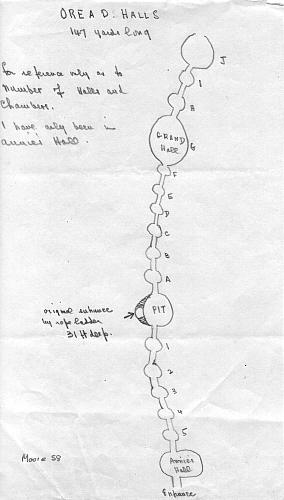 OREAD. HALLS
147 yards long
for reference only as to
number of Halls and
Chambers.
I have only been in
Annies Hall.
J
I
H
GRAND
Hall
G
F
E
D
C
B
A
original entrance
by rope ladder
31 ft deep.
PIT
1
2
3
4
5
Moore 58
Annies
Hall
Entrance